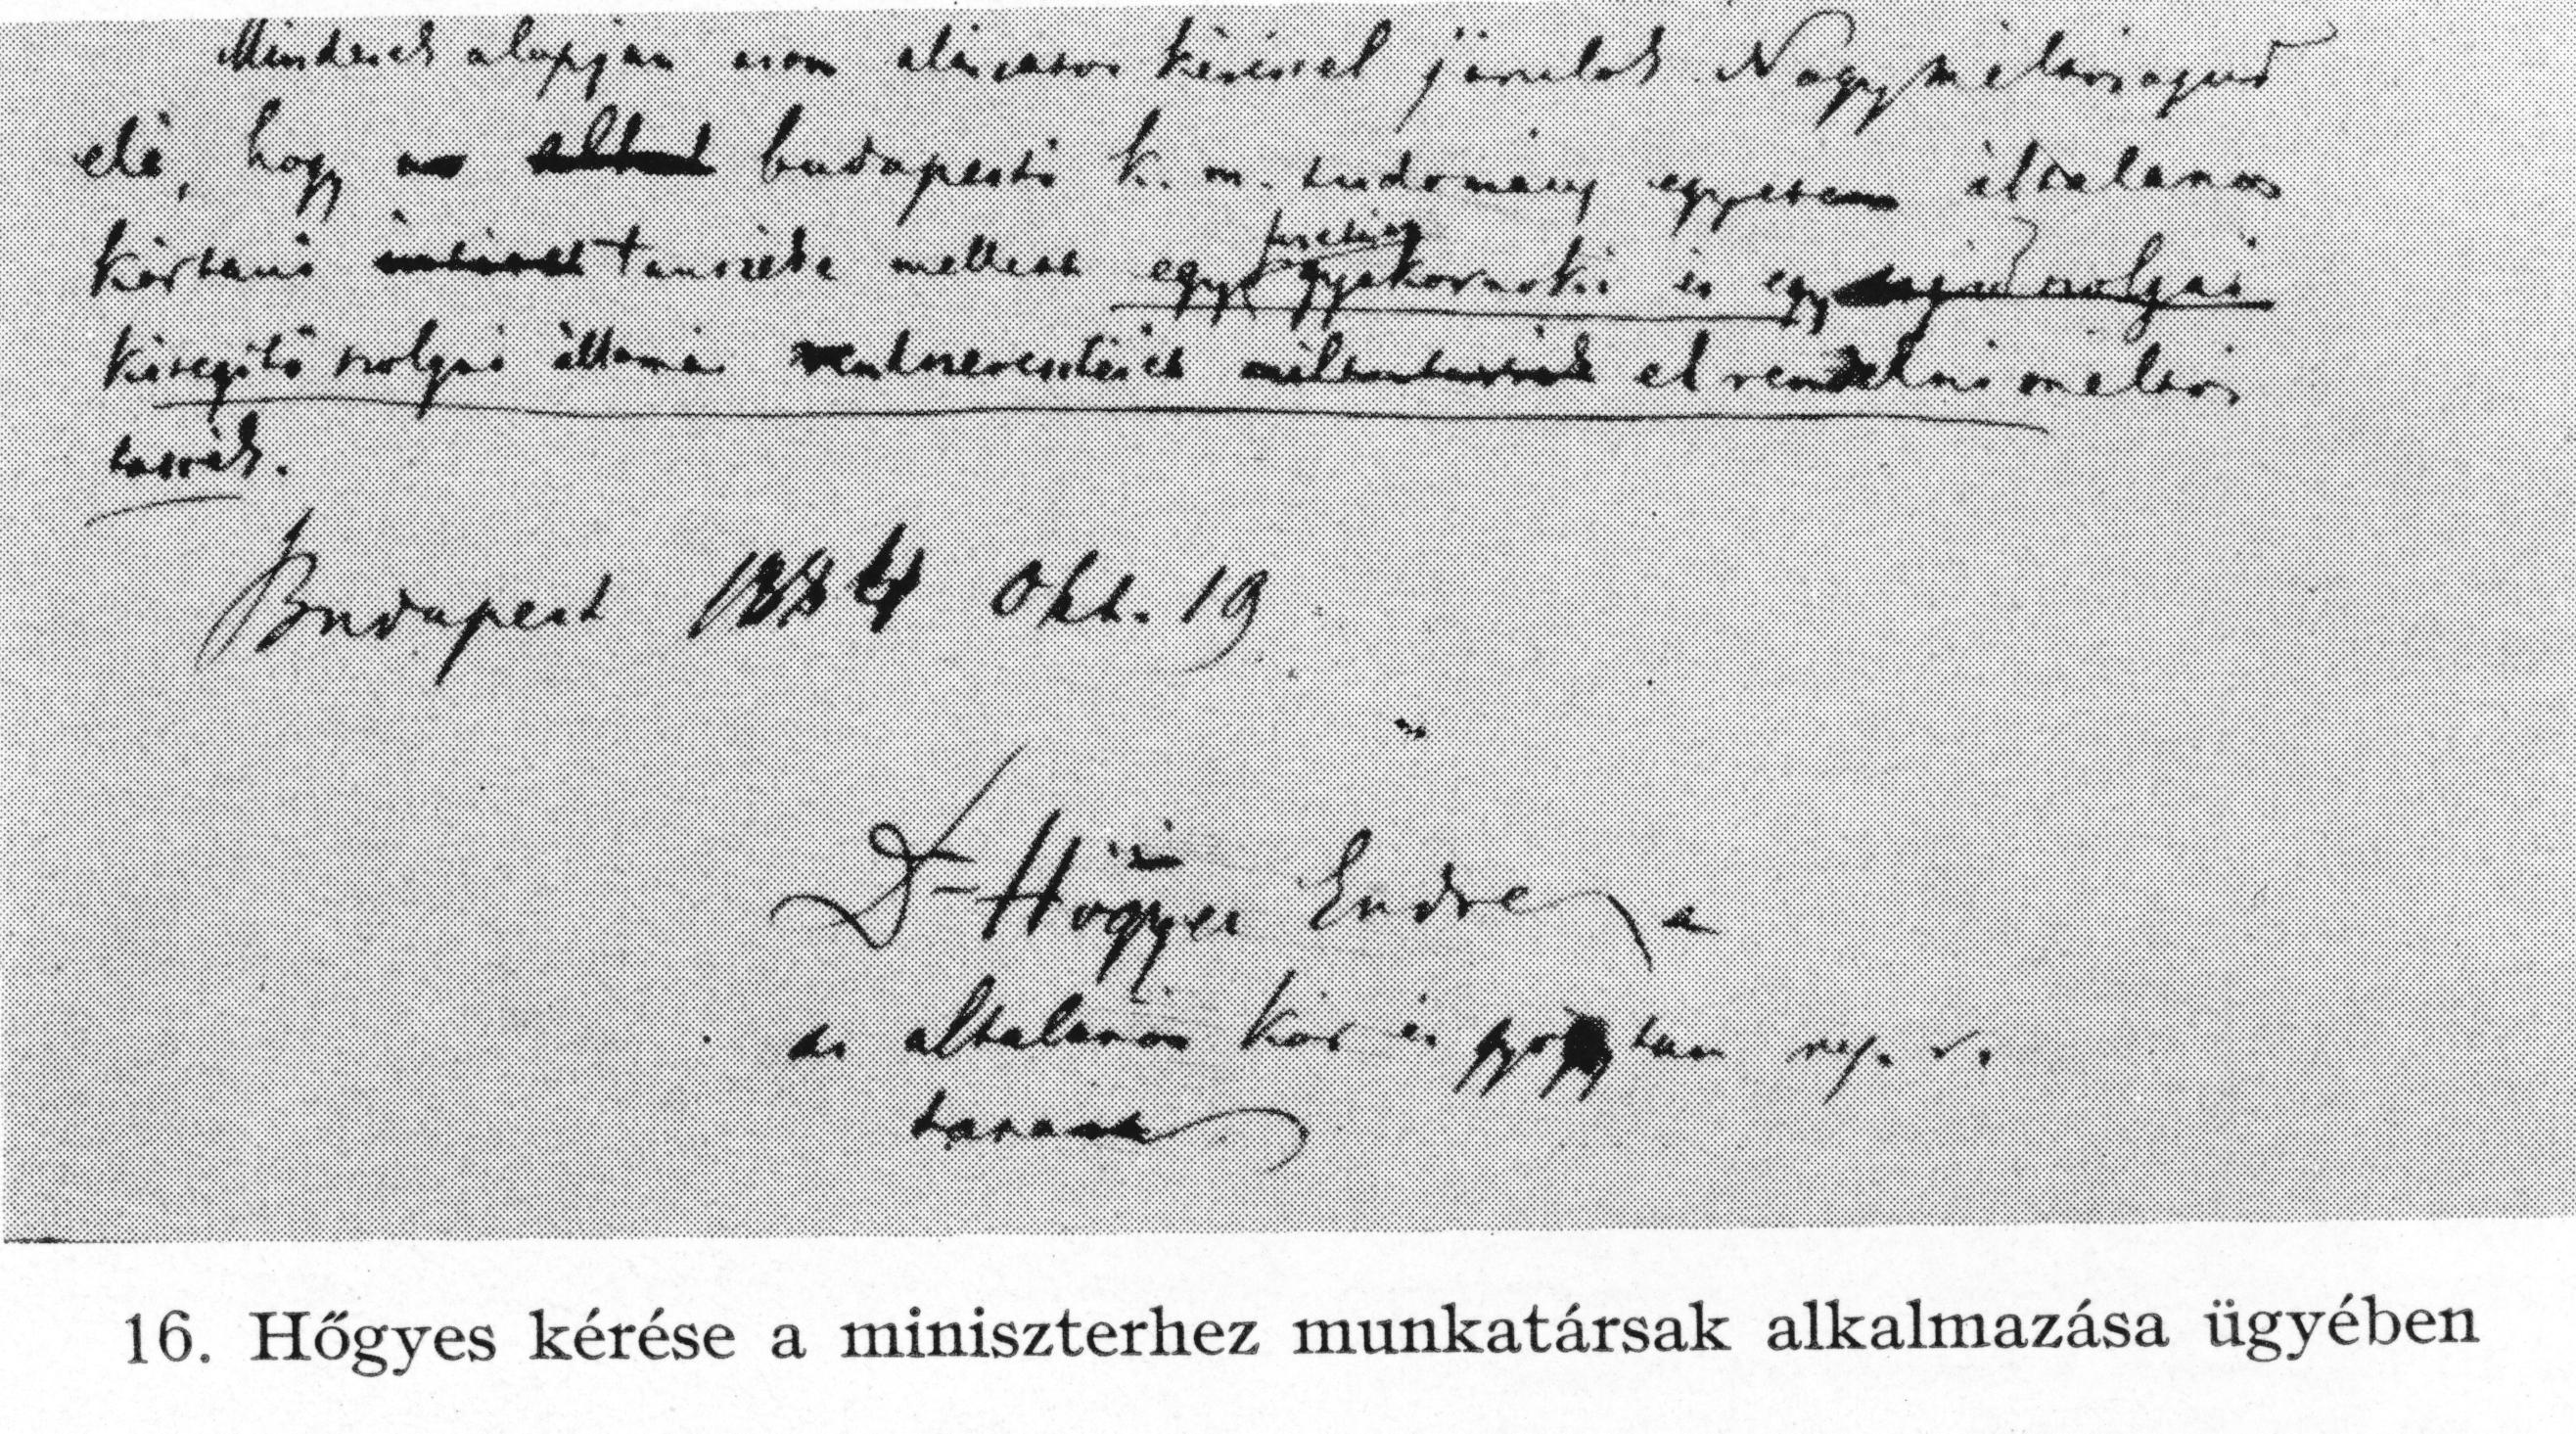 Mindezek alapján azon alázatos kéréssel járulok Nagyméltóságod
elé, hogy a budapesti k. m. tudomány egyetem általános
kórtani tanszéke mellett egy gyakornoki és egy szolgai
kisegítő szolgai állomás rendszeresítését elrendelni méltóz
tassék.
Budapest 1884 Okt. 19
Dr Hőgyes Endre
az általános kór és gyógytan ny. r.
tanára
16. Hőgyes kérése a miniszterhez munkatársak alkalmazása ügyében